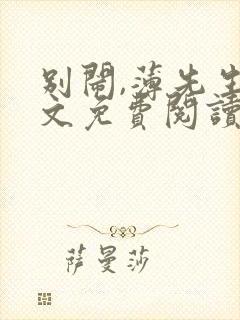 别闹,薄先生
文免费阅读
萨曼莎